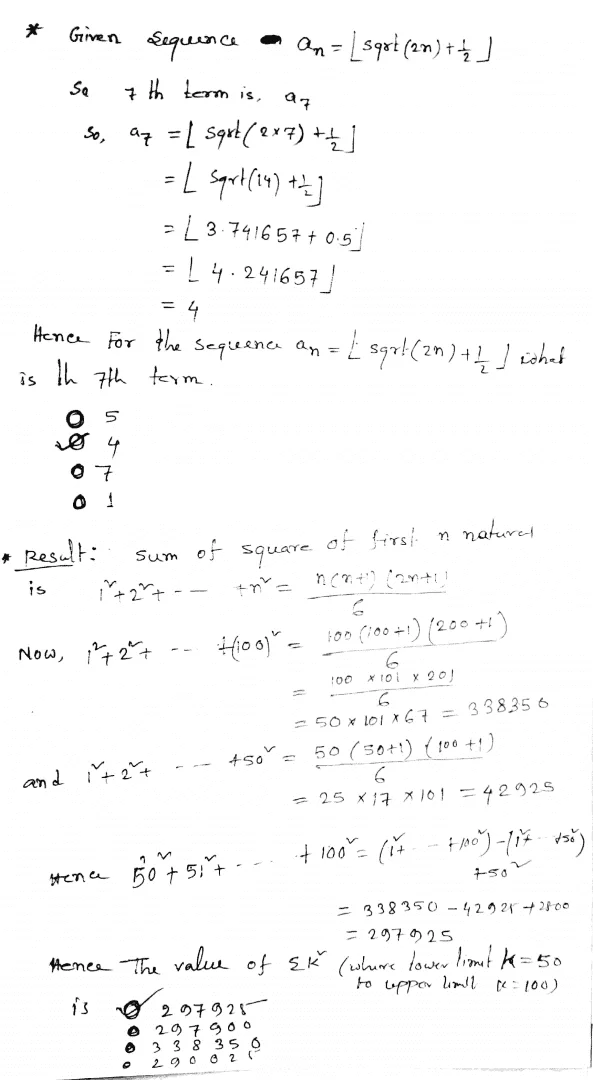 * Given Sequence - an = ⌊sqrt(2n) + 1/2⌋
So 7 th term is, a7
So, a7 = ⌊sqrt(2×7) + 1/2⌋
= ⌊sqrt(14) + 1/2⌋
= ⌊3.741657 + 0.5⌋
= ⌊4.241657⌋
= 4
Hence For the sequence an = ⌊sqrt(2n) + 1/2⌋ what
is th 7th term.
5
4
7
1
* Result: sum of square of first n natural
is 1² + 2² + -- +n² = n(n+1)(2n+1)/6
Now, 1² + 2² + -- +(100)² = 100(100+1)(200+1)/6
= 100 × 101 × 201/6
= 50 × 101 × 67 = 338350
and 1² + 2² + --- +50² = 50(50+1)(100+1)/6
= 25 × 17 × 101 = 42925
Hence 50² + 51² + ---- + 100² = (1² + -- +100²) - (1² + -- +50²)
+50²
= 338350 - 42925 + 2500
= 297925
Hence The value of Σk² (where lower limit k=50
to upper limit k=100)
is 297925
297900
338350
290025